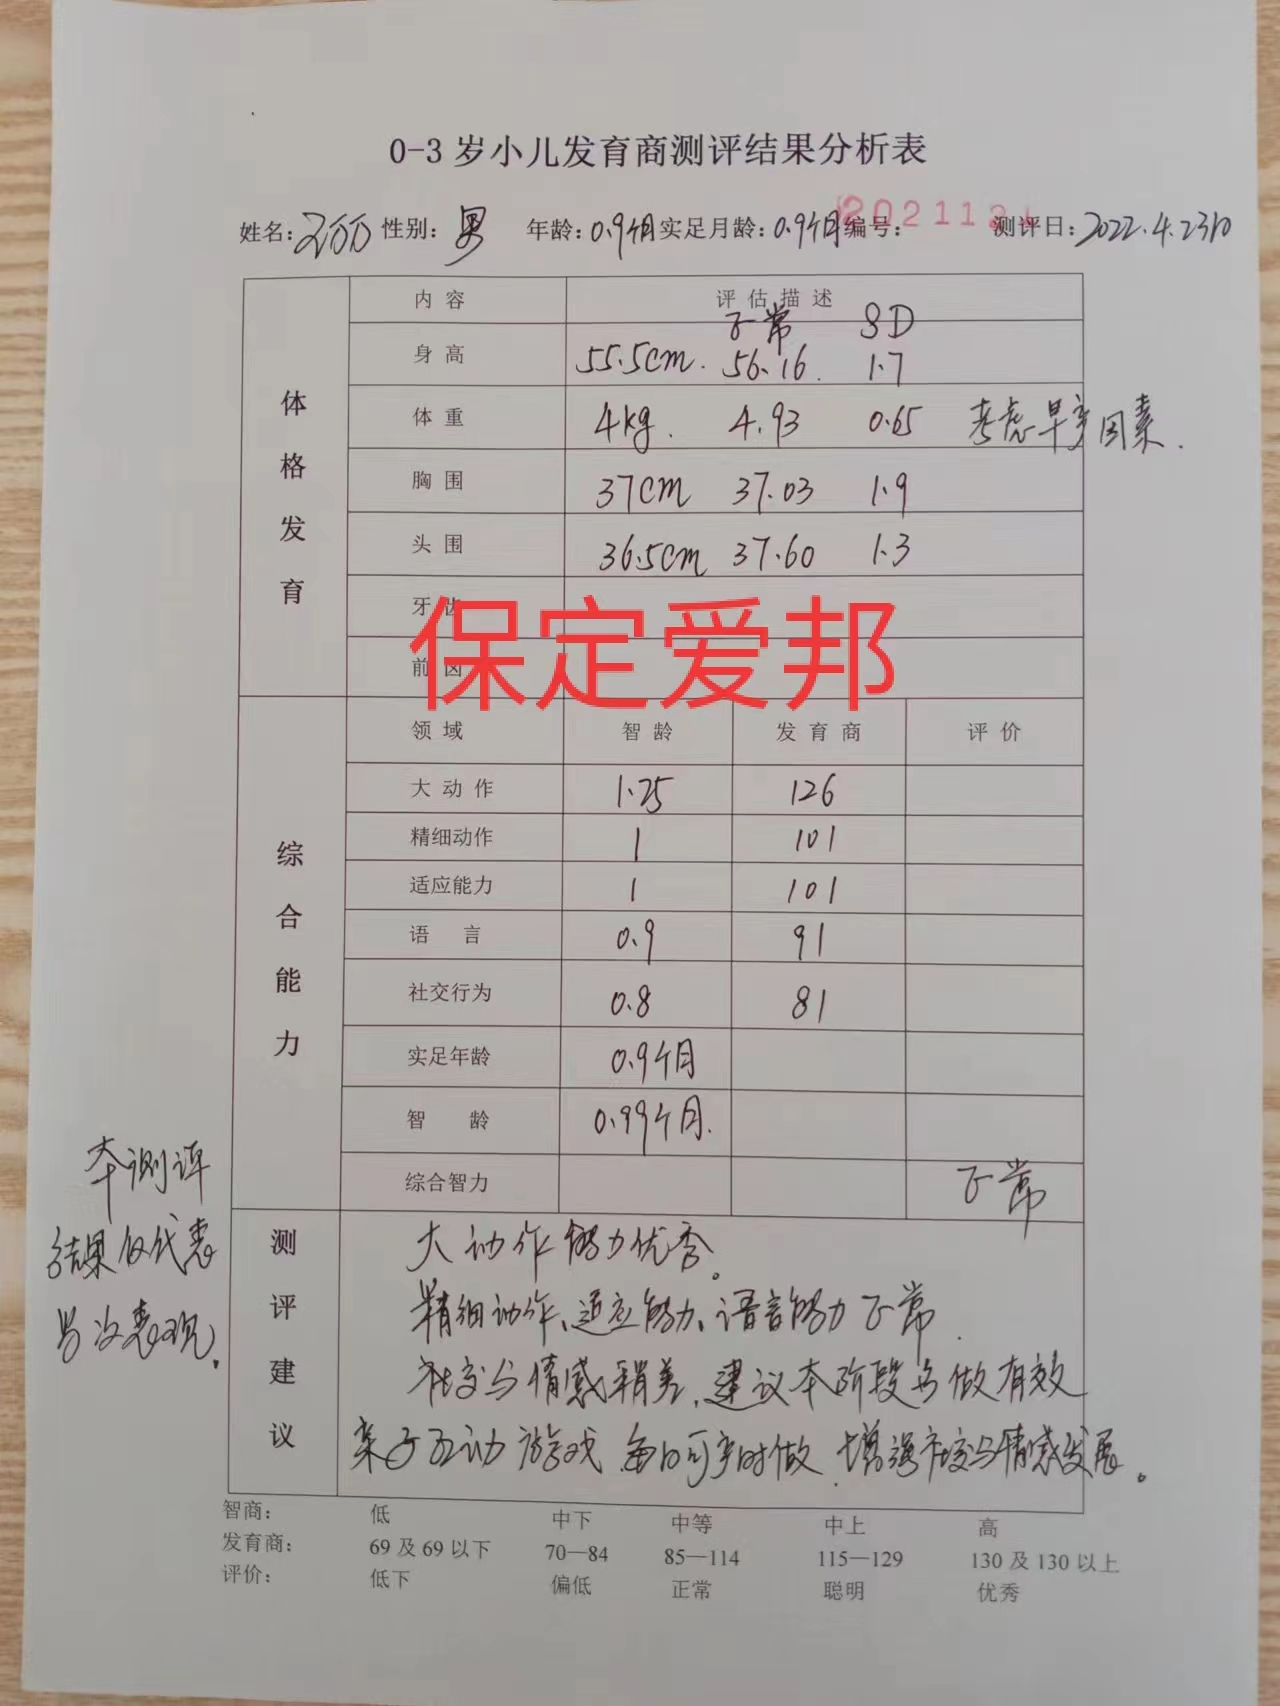 0-3岁小儿发育商测评结果分析表
姓名: 性别: 男 年龄: 0.9个月 实足月龄: 0.9个月 编号: 2021121 测评日: 2022.4.23日
体格发育
内容 评估描述
正常 SD
身高 55.5cm. 56.16. 1.7
体重 4kg. 4.93 0.65 考虑早产因素.
胸围 37cm 37.03 1.9
头围 36.5cm 37.60 1.3
牙齿
前囟
保定爱邦
综合能力
领域 智龄 发育商 评价
大动作 1.25 126
精细动作 1 101
适应能力 1 101
语言 0.9 91
社交行为 0.8 81
实足年龄 0.9个月
智龄 0.99个月.
综合智力 正常
测评建议
大动作能力优秀。
精细动作、适应能力、语言能力正常.
社交与情感稍差,建议本阶段多做有效
亲子互动游戏 每日可多时做.增强社交与情感发展。
本测评
结果仅代表
当次表现。
智商: 低 中下 中等 中上 高
发育商: 69及69以下 70—84 85—114 115—129 130及130以上
评价: 低下 偏低 正常 聪明 优秀